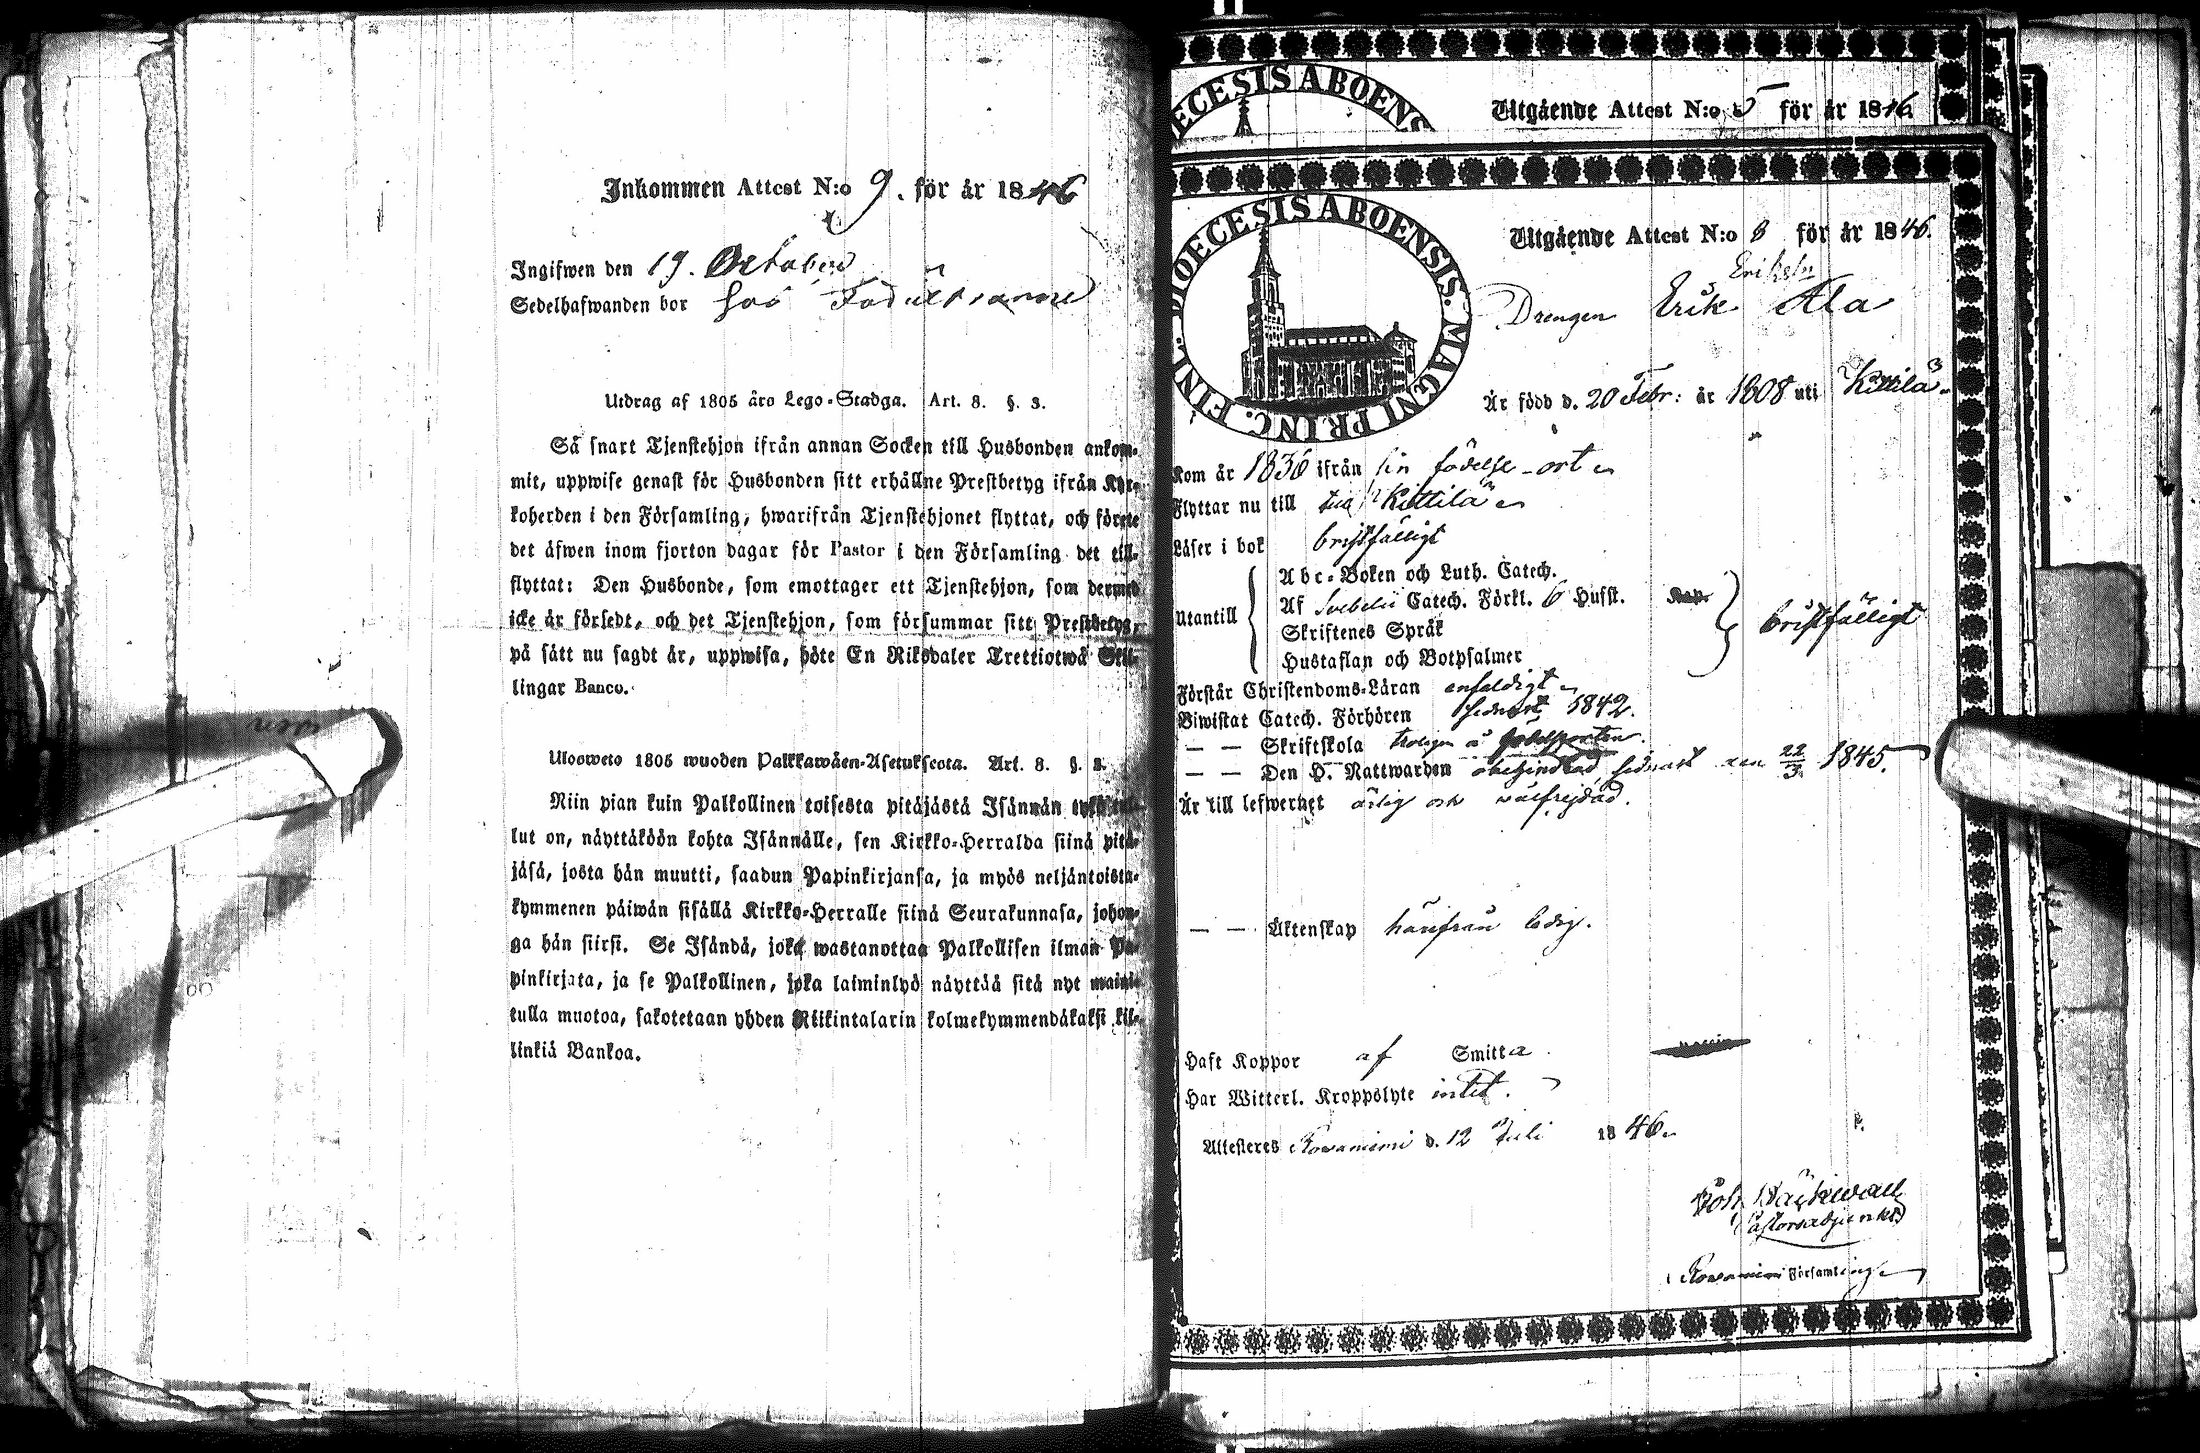 Inkommen Attest N:o 9. för år 1846
Ingifwen den 19. October
Sedelhafwanden bor hos
Utdrag af 1805 års Lego-Stadga. Art. 8. §. 3.
Så snart Tjenstehjon ifrån annan Socken till Husbonden ankom-
mit, uppwise genast för Husbonden sitt erhållne Prestbetyg ifrån Kyr-
koherden i den Församling, hwarifrån Tjenstehjonet flyttat, och förete
det äfwen inom fjorton dagar för Pastor i den Församling det till-
flyttat: Den Husbonde, som emottager ett Tjenstehjon, som dermed
icke är försedt, och det Tjenstehjon, som försummar sitt Prestbetyg,
på sätt nu sagdt är, uppwisa, böte En Riksdaler Trettiotwå Skil-
lingar Banco.
Ulosweto 1805 wuoden Palkkawäen-Asetuksesta. Art. 8. §. 3.
Niin pian kuin Palkollinen toisesta pitäjästä Isännän tykö tul-
lut on, näyttäköön kohta Isännälle, sen Kirkko-Herralda siinä pitä-
jäsä, josta hän muutti, saadun Papinkirjansa, ja myös neljäntoista-
kymmenen päiwän sisällä Kirkko-Herralle siinä Seurakunnasa, johon-
ga hän siirsi. Se Isändä, joka wastanottaa Palkollisen ilman Pa-
pinkirjata, ja se Palkollinen, joka laiminlyö näyttää sitä nyt maini-
tulla muotoa, sakotetaan yhden Riikintalarin kolmekymmendäkaksi kil-
linkiä Bankoa.
DIOECESIS ABOENS
Utgående Attest N:o 5 för år 1846
DIOECESIS ABOENSIS. MAGNI PRINC. FINL.
Utgående Attest N:o 8 för år 1846.
Eriksen
Drengen Erik Ala
Är född d. 20 Febr: år 1808 uti Kittilä
Kom år 1836 ifrån sin födelse-ort
Flyttar nu till Kittilä
Läser i bok bristfälligt
Utantill
Abc-Boken och Luth. Catech.
Af Svebelii Catech. Förkl. 6 Hufst.
Skriftenes Språk
Hustaflan och Botpsalmer
bristfälligt
Förstår Christendoms-Läran enfaldigt
Biwistat Catech. Förhören sednast 1842.
— — Skriftskola troligen å födelseorten.
— — Den H. Nattwarden obehindrad, sednast den 22/3 1845.
Är till lefwernet ärlig och välfrejdad.
— — Äktenskap härifrån ledig.
Haft Koppor af Smitta.
Har Witterl. Kroppslyte intet.
Attesteres Rovaniemi d. 12 Juli 1846.
Joh. Wäckewall
Pastorsadjunkt
i Rovaniemi Församling